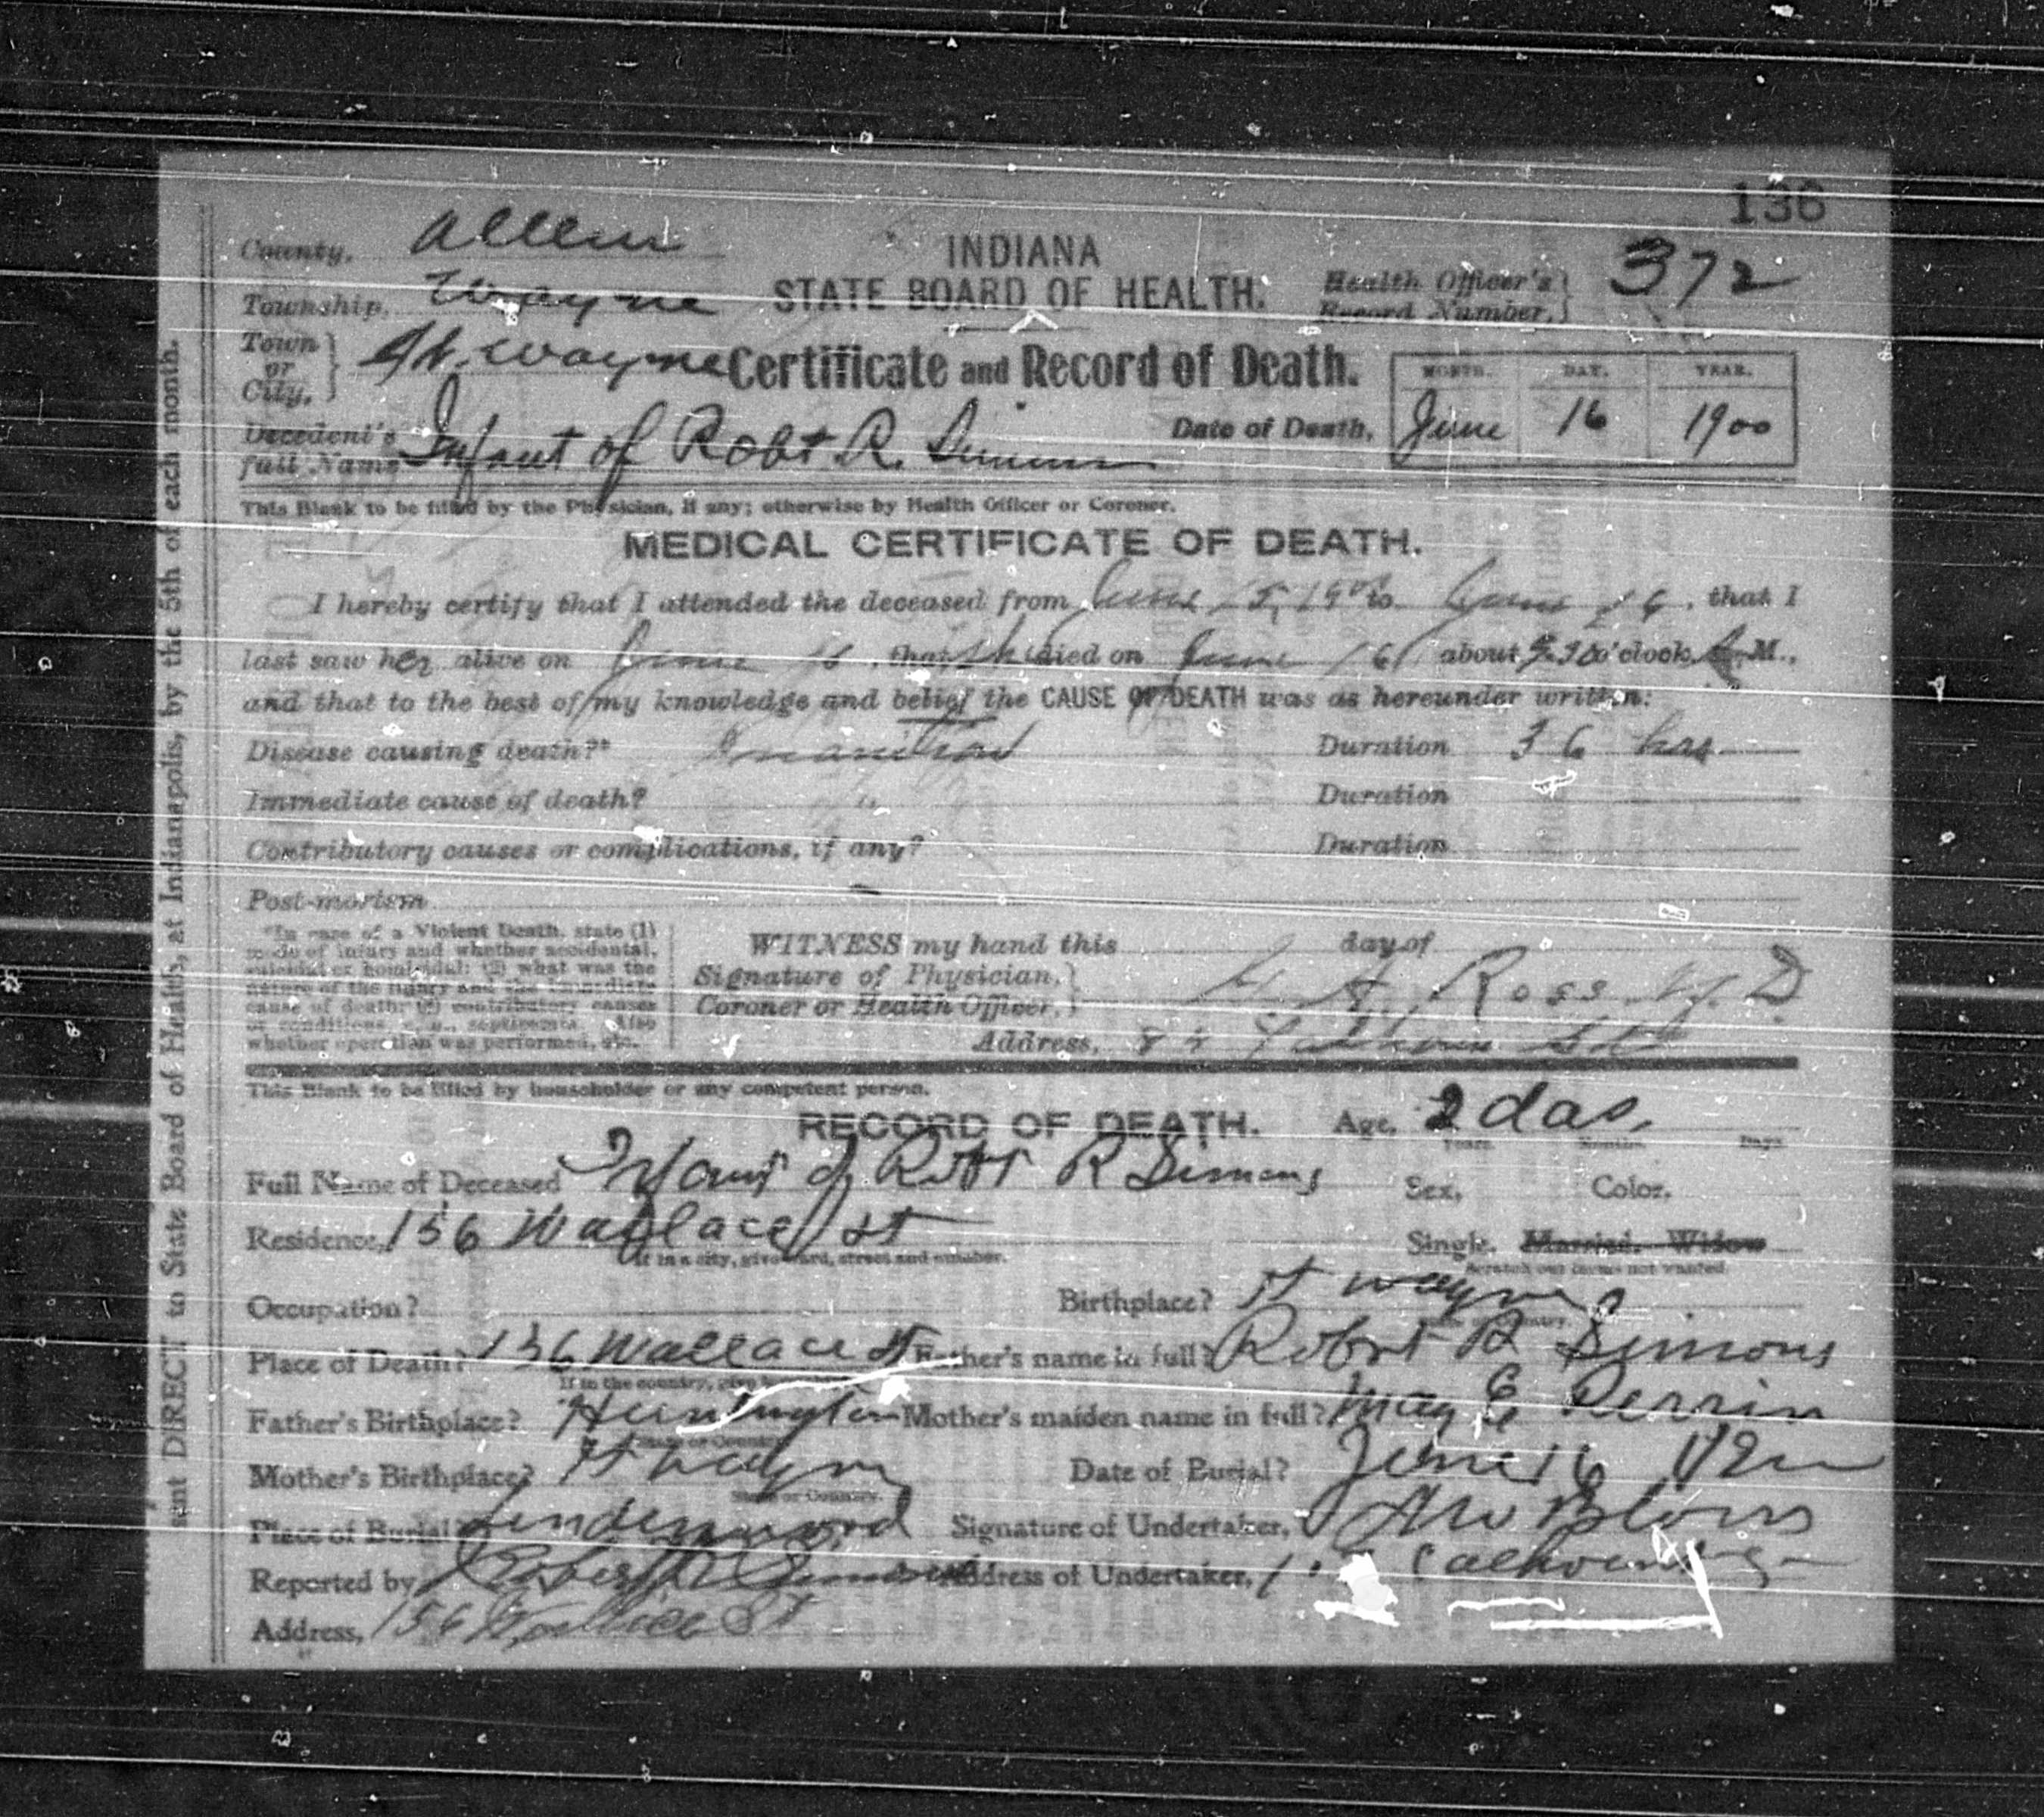 136
County, Allen
INDIANA
Health Officer's Record Number, 372
Township, Wayne
STATE BOARD OF HEALTH.
Town or City, Ft. Wayne
Certificate and Record of Death.
MONTH. DAY. YEAR.
Decedent's full Name Infant of Robt R. Simons
Date of Death, June 16 1900
This Blank to be filled by the Physician, if any; otherwise by Health Officer or Coroner.
MEDICAL CERTIFICATE OF DEATH.
I hereby certify that I attended the deceased from June 15, 1900 to June 16, that I
last saw her alive on June 16, that she died on June 16 about o'clock M.,
and that to the best of my knowledge and belief the CAUSE OF DEATH was as hereunder written:
Disease causing death?* Inanition Duration 36 hrs
Immediate cause of death? " Duration
Contributory causes or complications, if any? Duration
Post-mortem
*In case of a Violent Death, state (1)
mode of injury and whether accidental,
suicidal or homicidal; (2) what was the
nature of the injury and the immediate
cause of death; (3) contributory causes
or conditions, septicemia. Also
whether operation was performed, etc.
WITNESS my hand this day of
Signature of Physician, Coroner or Health Officer, H. A. Ross M.D
Address,
This Blank to be filled by householder or any competent person.
RECORD OF DEATH. Age, 2 das.
Years. Months. Days.
Full Name of Deceased Infant of Robt R Simons Sex, Color,
Residence, 156 Wallace St Single, Married, Widow
If in a city, give ward, street and number. Scratch out terms not wanted.
Occupation? Birthplace? Ft Wayne
State or Country.
Place of Death? 156 Wallace St Father's name in full? Robert R Simons
If in the country, give
Father's Birthplace? Huntington Mother's maiden name in full? May E Perrin
State or Country.
Mother's Birthplace? Ft Wayne Date of Burial? June 16
State or Country.
Place of Burial? Lindenwood Signature of Undertaker,
Reported by Robert R Simons Address of Undertaker, Calhoun
Address, 156 Wallace St
sent DIRECT to State Board of Health, at Indianapolis, by the 5th of each month.